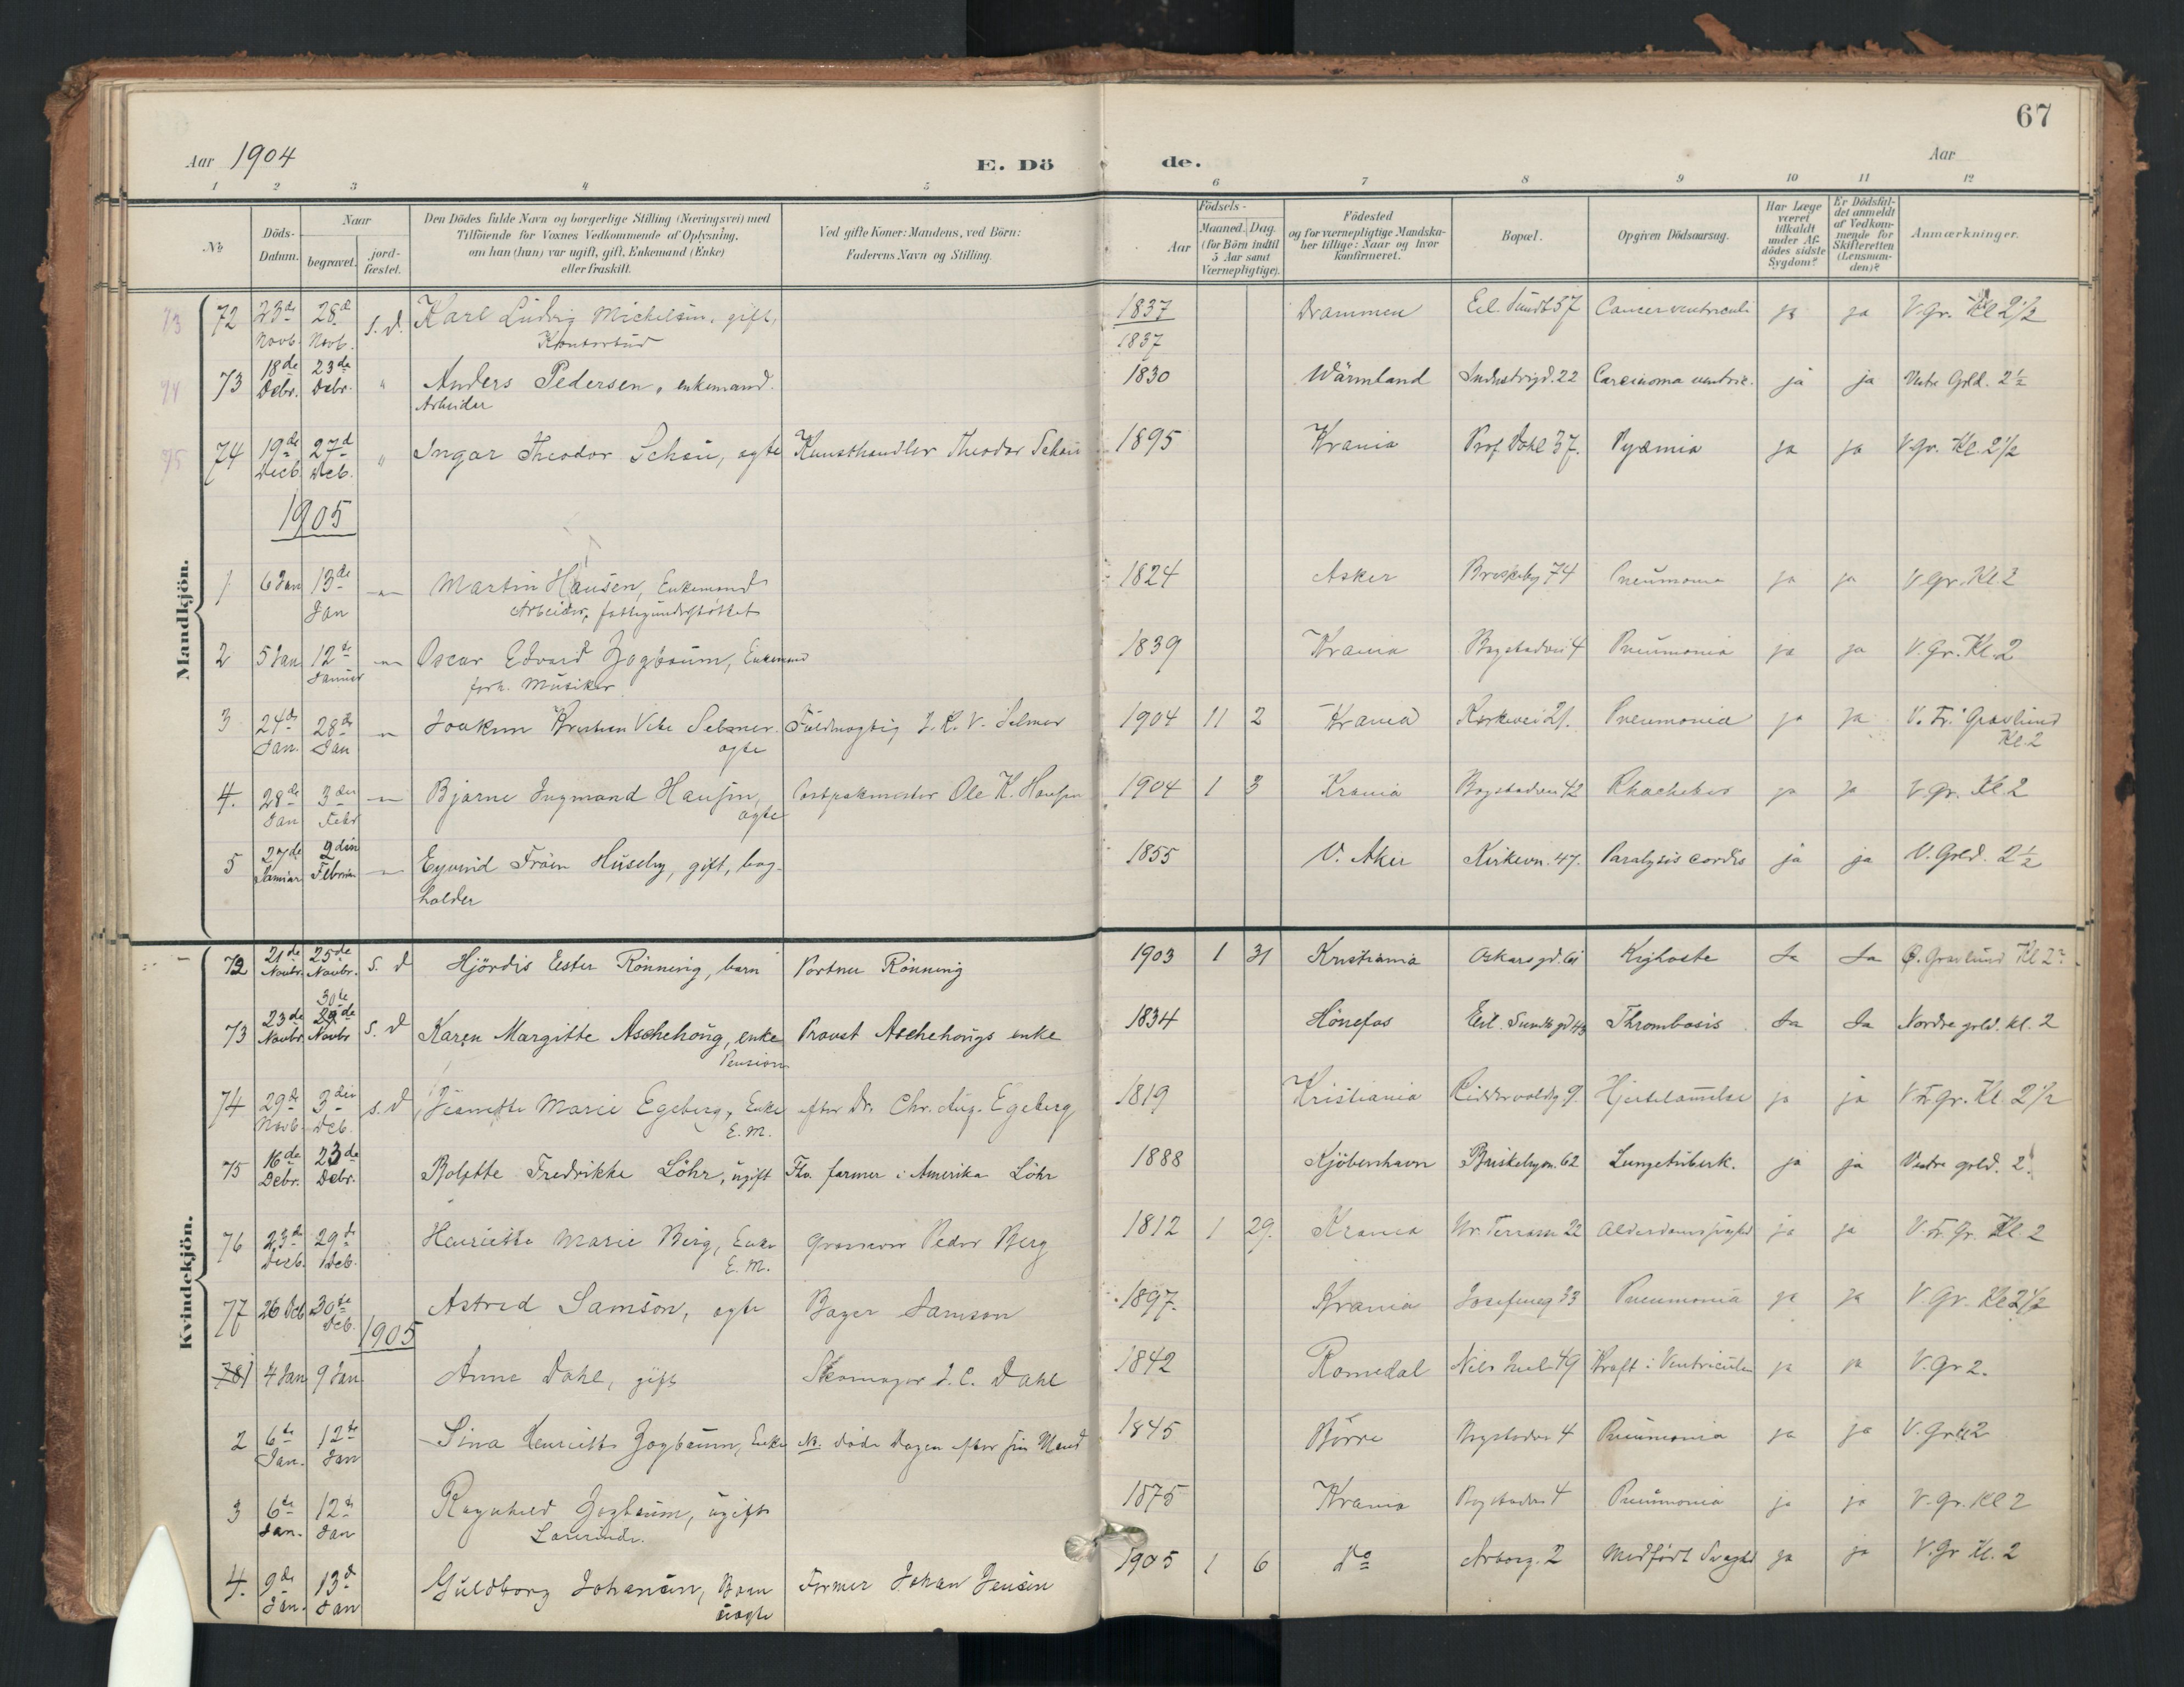 67
Aar 1904
E. Dö de.
Aar
1 2 3 4 5 6 7 8 9 10 11 12
No. Döds-Datum. Naar begravet. jord-fæstet. Den Dödes fulde Navn og borgerlige Stilling (Næringsvei) med Tilföiende for Voxnes Vedkommende af Oplysning, om han (hun) var ugift, gift, Enkemand (Enke) eller fraskilt. Ved gifte Koner: Mandens, ved Börn: Faderens Navn og Stilling. Födsels- Aar Maaned. Dag. (for Börn indtil 5 Aar samt Værnepligtige). Födested og for værnepligtige Mandskaber tillige: Naar og hvor konfirmeret. Bopæl. Opgiven Dödsaarsag. Har Læge været tilkaldt under Afdödes sidste Sygdom? Er Dödsfaldet anmeldt af Vedkommende for Skifteretten (Lensmanden)? Anmærkninger.
Mandkjön.
73 72 23de Novb. 28de Novb. s. d. Karl Ludvig Michelsen, gift, Kontorbud 1837 1837 Drammen Eil. Sundt 37 Cancer ventriculi ja ja V. Gr. Kl 2 1/2
74 73 18de Debr. 23de Debr. " Anders Pedersen, enkemand. Arbeider 1830 Wärmland Industrigd. 22 Carcinoma ventric. ja ja Vestre Grld. 2 1/2
75 74 19de Decb. 27d Deb. " Ingar Theodor Schou, ægte Kunsthandler Theodor Schou 1895 Krania Prof. Dahl 37. Pyæmia ja ja V. gr. Kl. 2 1/2
1905
1 6 Jan 13de Jan Martin Hansen, Enkemand Arbeider, fattigunderstøttet 1824 Asker Briskeby 74 Pneumonia ja ja V Gr. Kl 2
2 5 Jan 12te Januar Oscar Edvard Zogbaum, Enkemand forh. Musiker 1839 Krania Bogstadvei 4 Pneumonia ja ja V. Gr. Kl. 2
3 24de Jan. 28de Jan Joakim Kristian Selmer. ægte Fuldmægtig J. K. V. Selmer 1904 11 2 Krania Kirkevei 21. Pneumonia ja ja V. Fr. Gravlund Kl. 2
4. 28de Jan 3die Febr Bjarne Ingmand Hansen, ægte Postpakmester Ole K. Hansen 1904 1 3 Krania Bogstadvei 42 ja ja V. gr. Kl. 2
5 27de Januar 2den Februar Eyvind Huseby, gift, bogholder 1855 V. Aker Kirkevn. 47. Paralysis cordis ja ja V. Grld. 2 1/2
Kvindekjön.
72 21de Novbr. 25de Novbr. s. d Hjördis Ester Rönning, barn Portner Rönning 1903 1 31 Kristiania Oskarsgd. 61 Kighoste Ja Ja Ø. Gravlund Kl 2
73 23de Novbr 30te 29de Novbr s. d Karen Margitte Aschehoug, enke Pension Provst Aschehougs enke 1834 Hönefos Eil. Sundts gd 43 Thrombosis Ja Ja Nordre grld. kl. 2
74 29de Novb. 3die Deb. s. d Jeanette Marie Egeberg, Enke E. M. efter Dr. Chr. Aug. Egeberg 1819 Kristiania Riddervoldg 9 Hjertelammelse ja ja V Fr. gr. Kl. 2 1/2
75 16de Debr. 23de Debr. Bolette Fredrikke Löhr, ugift Fhv. farmer i Amerika Löhr 1888 Kjöbenhavn Briskebyvn. 62 Lungetuberk. ja ja Vestre grld. 2.
76 23de Decb. 29de Deb. Henriette Marie Berg, Enke E. M. Grosserer Peder Berg 1812 1 29. Krania Ur. Terrasse 22 Alderdomssvaghed ja ja V. Fr. Gr. Kl. 2
77 26 Dcb 30te Deb. Astrid Samson, ægte Bager Samson 1897. Krania Josefineg 33 Pneumonia ja ja V. Gr. Kl 2 1/2
1905
78 1 4 Jan 9 Jan. Anna Dahl, gift Skomager J. C. Dahl 1842 Romedal Nils Juel 49 Kræft i Ventriculen ja ja V. Gr 2.
2 6te Jan. 12te Jan Sina Henriette Zogbaum, Enke NB. døde Dagen efter sin Mand 1845 Börre Bogstadvei 4 Pneumonia ja ja V. Gr kl 2
3 6te Jan. 12te Jan Ragnhild Zogbaum, ugift Lærerinde. 1875 Krania Bogstadvei 4 Pneumonia ja ja V. gr. Kl 2
4. 9de Jan. 13de Jan Guldborg Johansen, Barn uægte Former Johan Jensen 1905 1 6 do Arborg. 2 Medfödt Svaghed ja ja V. Gr Kl. 2